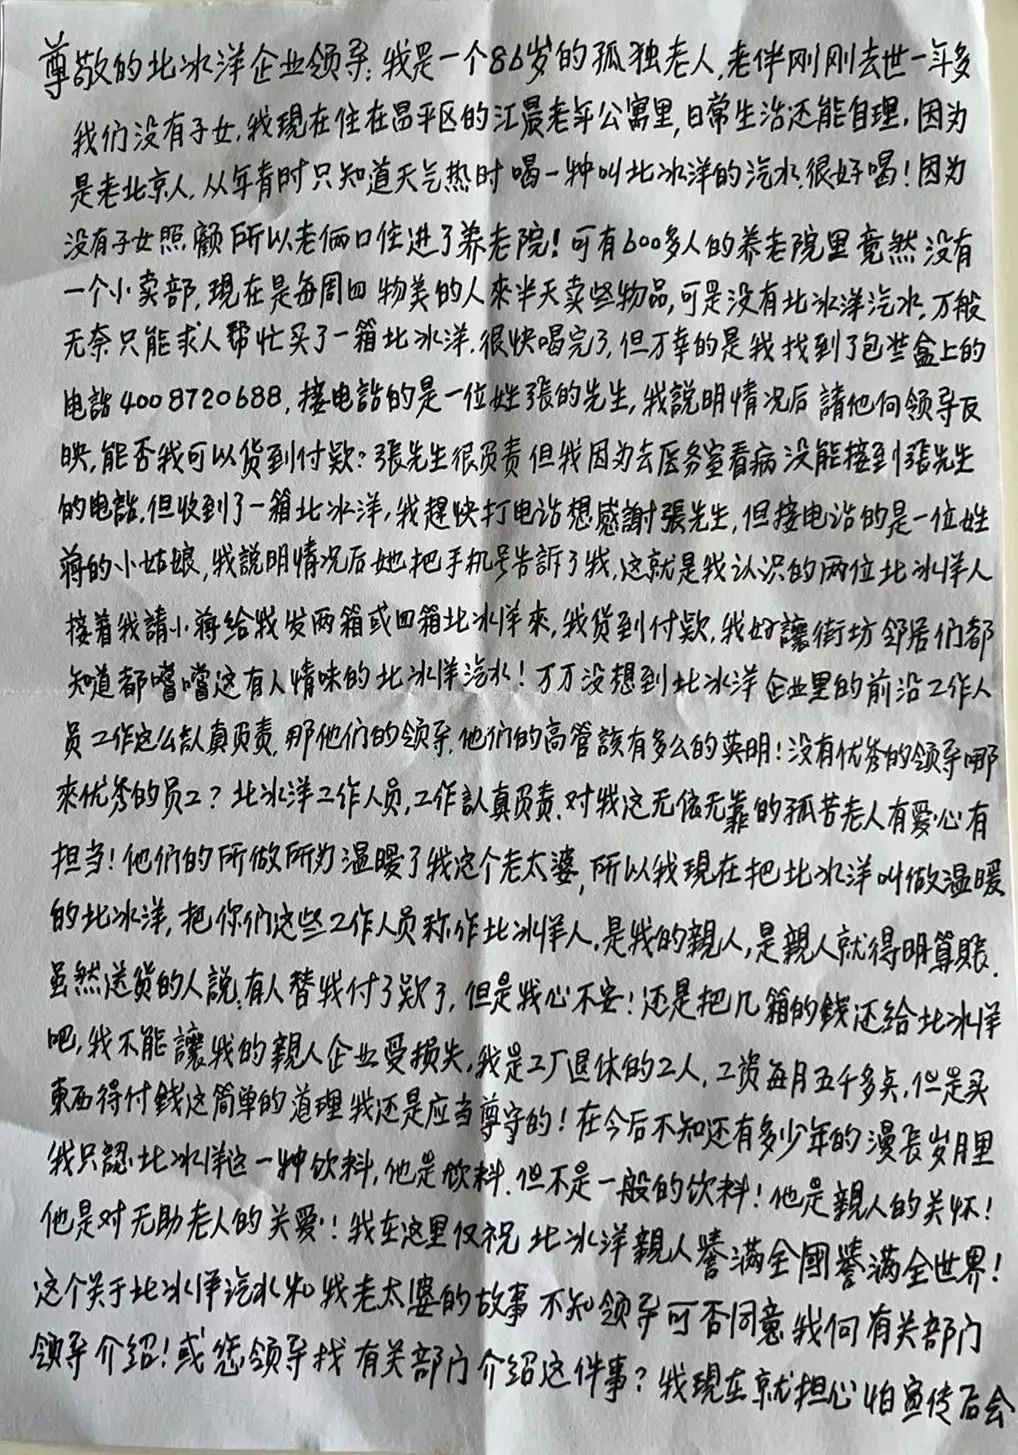 尊敬的北冰洋企业领导:我是一个86岁的孤独老人,老伴刚刚去世一年多
我们没有子女,我現在住在昌平区的江晨老年公寓里,日常生活还能自理,因为
是老北京人,从年青时只知道天气热时喝一种叫北冰洋的汽水,很好喝!因为
没有子女照顧所以老俩口住进了养老院!可有600多人的养老院里竟然没有
一个小卖部,現在是每周四物美的人來半天卖些物品,可是没有北冰洋汽水,万般
无奈只能求人帮忙买了一箱北冰洋,很快喝完了,但万幸的是我找到了包装盒上的
电話4008720688,接电話的是一位姓張的先生,我説明情况后請他向领导反
映,能否我可以货到付款?張先生很负责但我因为去医务室看病没能接到張先生
的电話,但收到了一箱北冰洋,我趕快打电话想感謝張先生,但接电话的是一位姓
蒋的小姑娘,我説明情况后她把手机号告訴了我,这就是我认识的两位北冰洋人
接着我請小蒋给我发两箱或四箱北冰洋來,我货到付款,我好讓街坊邻居们都
知道都嚐嚐这有人情味的北冰洋汽水!万万没想到北冰洋企业里的前沿工作人
员工作这么認真负责,那他们的领导,他们的高管該有多么的英明!没有优秀的领导哪
來优秀的员工?北冰洋工作人员,工作認真负责,对我这无依无靠的孤苦老人有爱心有
担当!他们的所做所为温暖了我这个老太婆,所以我現在把北冰洋叫做温暖
的北冰洋,把你们这些工作人员称作北冰洋人,是我的親人,是親人就得明算賬.
虽然送货的人説:有人替我付了款了,但是我心不安!还是把几箱的錢还给北冰洋
吧,我不能讓我的親人企业受损失,我是工厂退休的工人,工资每月五千多点,但是买
東西得付錢这简单的道理我还是应当尊守的!在今后不知还有多少年的漫長岁月里
我只認北冰洋这一种饮料,他是饮料,但不是一般的饮料!他是親人的关怀!
他是对无助老人的关爱!!我在这里仅祝北冰洋親人譽满全國譽满全世界!
这个关于北冰洋汽水和我老太婆的故事不知领导可否同意我向有关部门
领导介绍!或您领导找有关部门介绍这件事?我現在就担心怕宣传后会